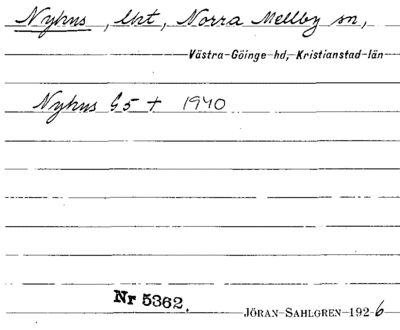 Nyhus, lht, Norra Mellby sn,
Västra Göinge hd, Kristianstad län
Nyhus G5 + 1940
Nr 5362.
JÖRAN SAHLGREN 1926